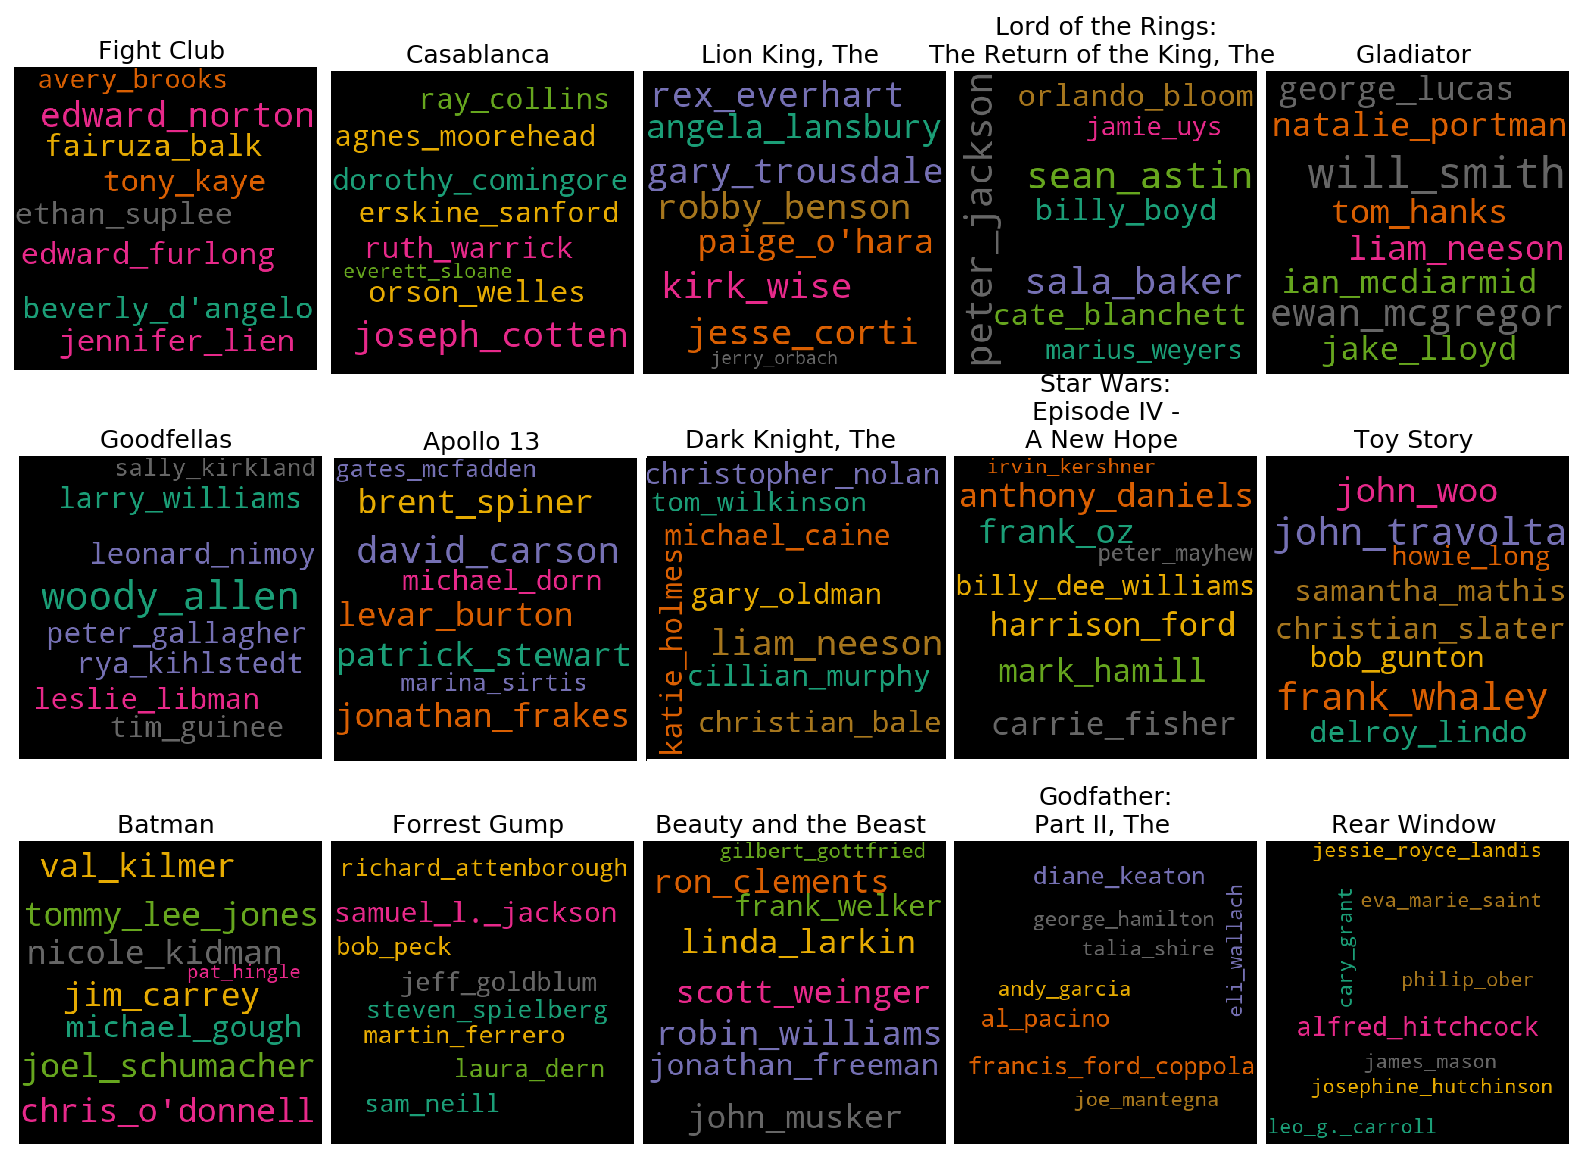 Fight Club
avery_brooks
edward_norton
fairuza_balk
tony_kaye
ethan_suplee
edward_furlong
beverly_d'angelo
jennifer_lien
Casablanca
ray_collins
agnes_moorehead
dorothy_comingore
erskine_sanford
ruth_warrick
everett_sloane
orson_welles
joseph_cotten
Lion King, The
rex_everhart
angela_lansbury
gary_trousdale
robby_benson
paige_o'hara
kirk_wise
jesse_corti
jerry_orbach
Lord of the Rings:
The Return of the King, The
peter_jackson
orlando_bloom
jamie_uys
sean_astin
billy_boyd
sala_baker
cate_blanchett
marius_weyers
Gladiator
george_lucas
natalie_portman
will_smith
tom_hanks
liam_neeson
ian_mcdiarmid
ewan_mcgregor
jake_lloyd
Goodfellas
sally_kirkland
larry_williams
leonard_nimoy
woody_allen
peter_gallagher
rya_kihlstedt
leslie_libman
tim_guinee
Apollo 13
gates_mcfadden
brent_spiner
david_carson
michael_dorn
levar_burton
patrick_stewart
marina_sirtis
jonathan_frakes
Dark Knight, The
christopher_nolan
tom_wilkinson
michael_caine
katie_holmes
gary_oldman
liam_neeson
cillian_murphy
christian_bale
Star Wars:
Episode IV -
A New Hope
irvin_kershner
anthony_daniels
frank_oz
peter_mayhew
billy_dee_williams
harrison_ford
mark_hamill
carrie_fisher
Toy Story
john_woo
john_travolta
howie_long
samantha_mathis
christian_slater
bob_gunton
frank_whaley
delroy_lindo
Batman
val_kilmer
tommy_lee_jones
nicole_kidman
pat_hingle
jim_carrey
michael_gough
joel_schumacher
chris_o'donnell
Forrest Gump
richard_attenborough
samuel_l._jackson
bob_peck
jeff_goldblum
steven_spielberg
martin_ferrero
laura_dern
sam_neill
Beauty and the Beast
gilbert_gottfried
ron_clements
frank_welker
linda_larkin
scott_weinger
robin_williams
jonathan_freeman
john_musker
Godfather:
Part II, The
diane_keaton
eli_wallach
george_hamilton
talia_shire
andy_garcia
al_pacino
francis_ford_coppola
joe_mantegna
Rear Window
jessie_royce_landis
cary_grant
eva_marie_saint
philip_ober
alfred_hitchcock
james_mason
josephine_hutchinson
leo_g._carroll